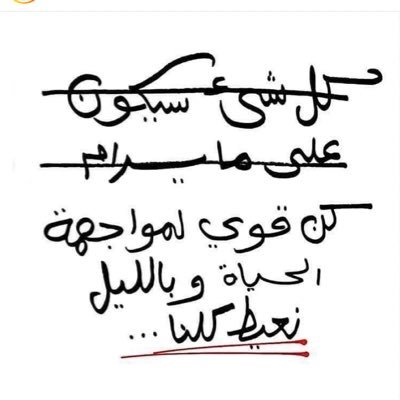 كل شيء سيكون
على ما يرام
كن قوي لمواجهة
الحياة وبالليل
نعيط كلنا ...